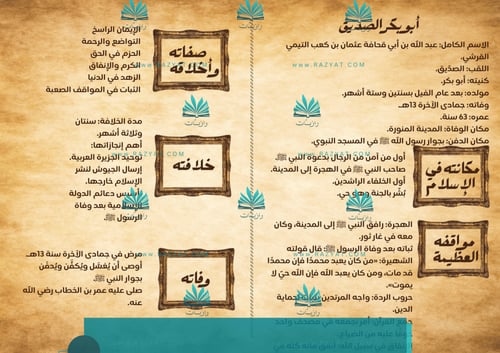 أبو بكر الصديق
الاسم الكامل: عبد الله بن أبي قحافة عثمان بن كعب التيمي
القرشي.
اللقب: الصدّيق.
كنيته: أبو بكر.
مولده: بعد عام الفيل بسنتين وستة أشهر.
وفاته: جمادى الآخرة 13هـ
عمره: 63 سنة.
مكان الوفاة: المدينة المنورة.
مكان الدفن: بجوار رسول الله ﷺ في المسجد النبوي.
مكانته في
الإسلام
أول من آمن من الرجال بدعوة النبي ﷺ
صاحب النبي ﷺ في الهجرة إلى المدينة.
أول الخلفاء الراشدين.
بُشّر بالجنة وهو حي.
مواقفه
العظيمة
الهجرة: رافق النبي ﷺ إلى المدينة، وكان
معه في غار ثور.
ثباته بعد وفاة الرسول ﷺ: قال قولته
الشهيرة: «من كان يعبد محمدًا فإن محمدًا
قد مات، ومن كان يعبد الله فإن الله حيّ لا
يموت».
حروب الردة: واجه المرتدين بثبات لحماية
الدين.
جمع القرآن: أمر بجمعه في مصحف واحد
خوفًا عليه من الضياع.
صفاته
وأخلاقه
الإيمان الراسخ
التواضع والرحمة
الحزم في الحق
الكرم والإنفاق
الزهد في الدنيا
الثبات في المواقف الصعبة
خلافته
مدة الخلافة: سنتان
وثلاثة أشهر.
أهم إنجازاتها:
توحيد الجزيرة العربية.
إرسال الجيوش لنشر
الإسلام خارجها.
تأسيس دعائم الدولة
الإسلامية بعد وفاة
الرسول ﷺ.
وفاته
مرض في جمادى الآخرة سنة 13هـ
أوصى أن يُغسّل ويُكفّن ويُدفن
بجوار النبي ﷺ.
صلى عليه عمر بن الخطاب رضي الله
عنه.
رازيات
www.RAZYAT.COM